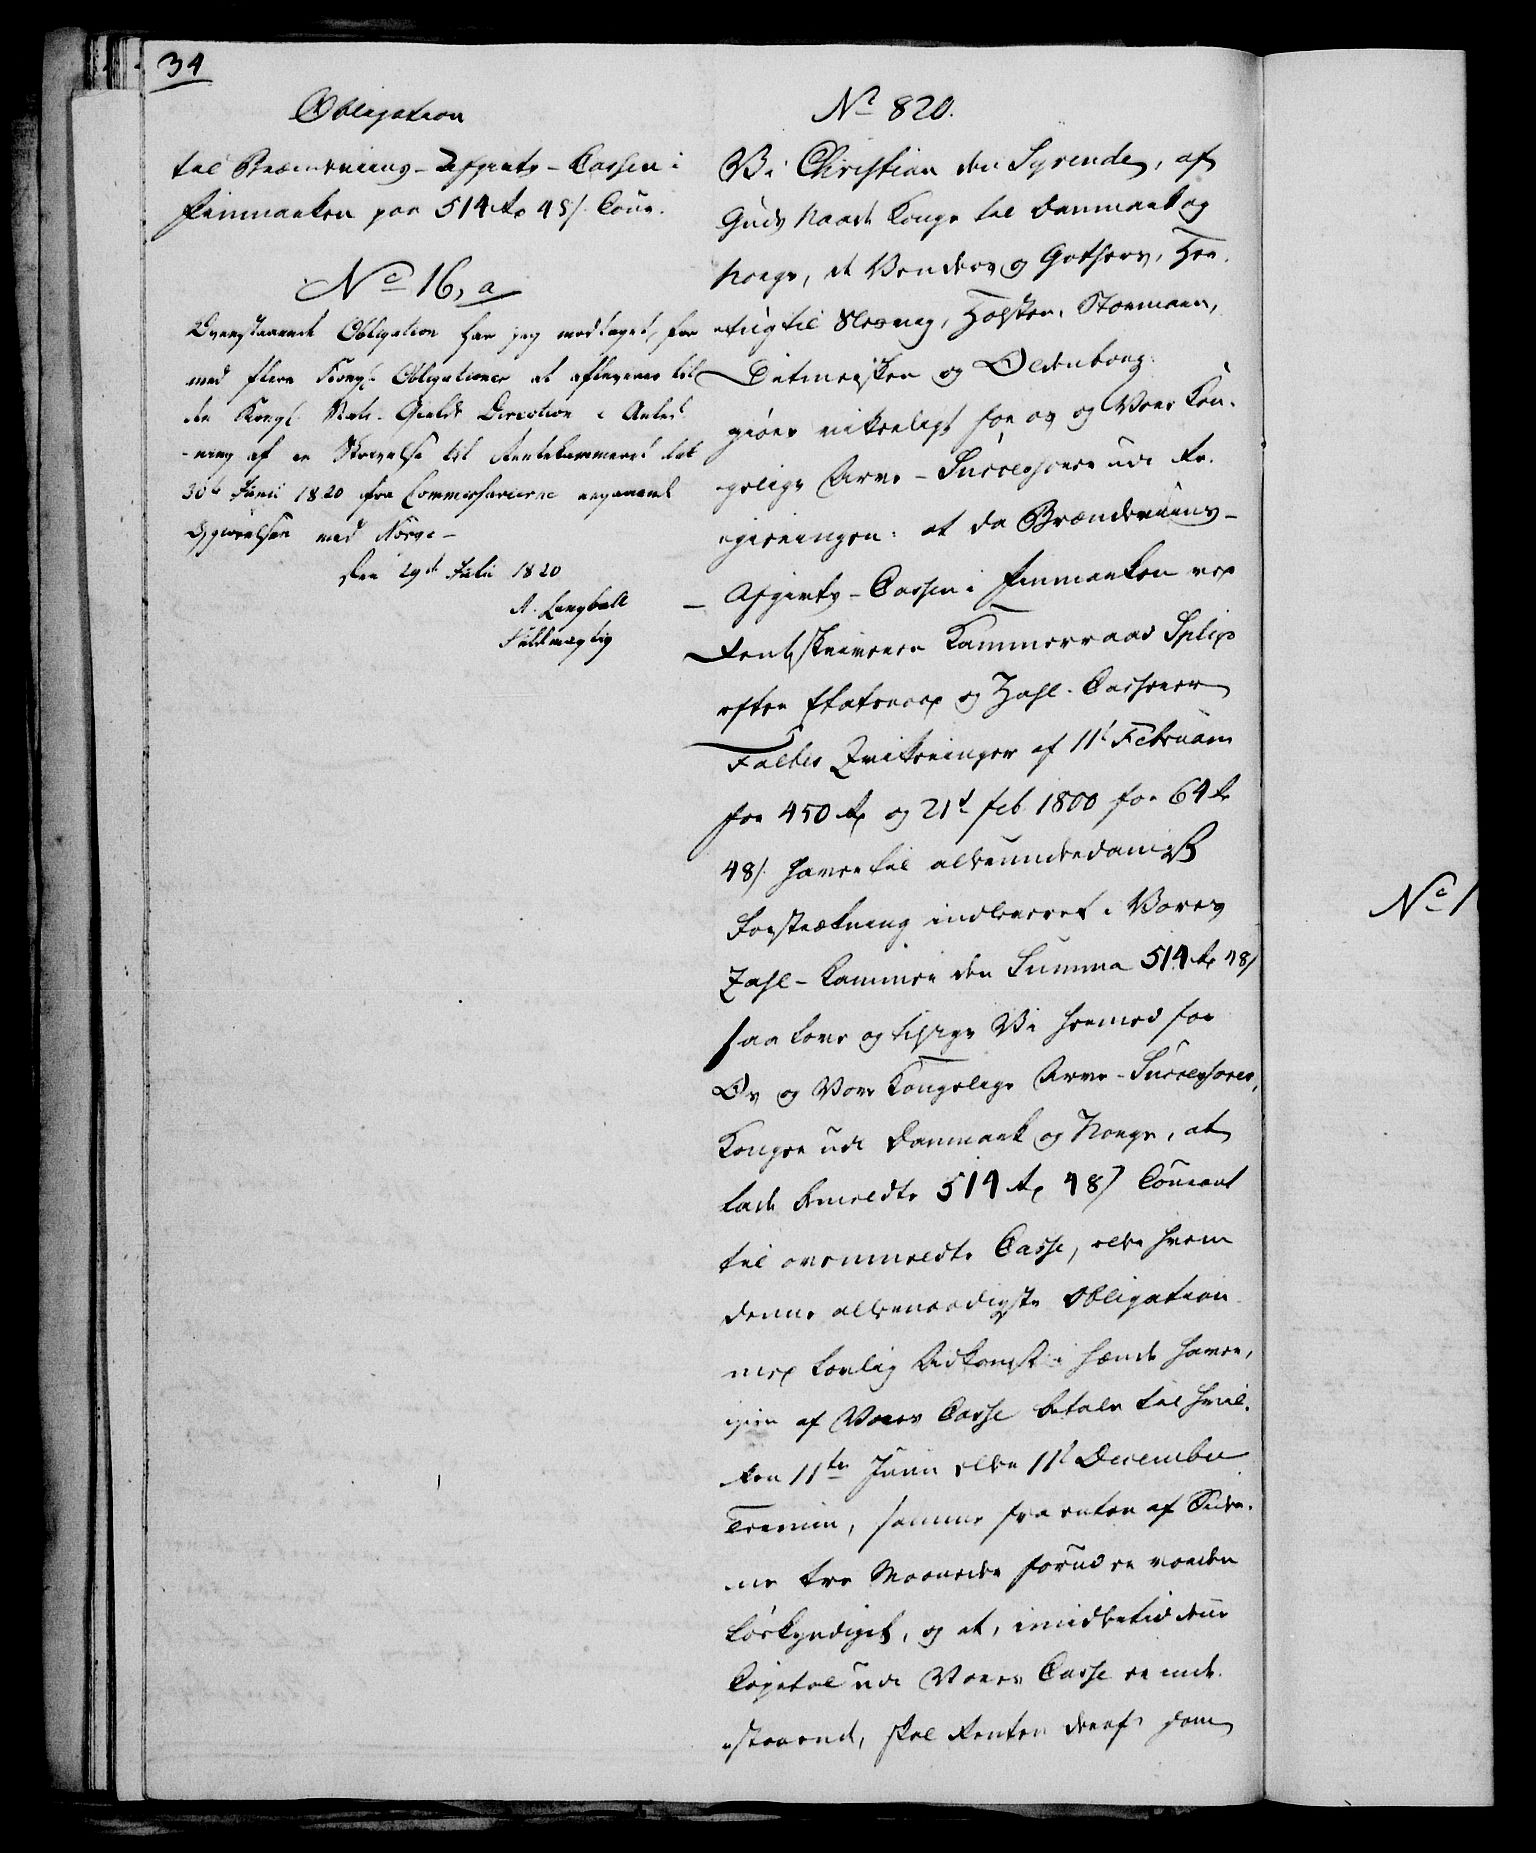 34
Obligation
til Brændeviins-Afgivts-Cassen i
Finmarken paa 514 rd 48 s. Cour.
No 16, a
Ovenstaaende Obligation har jeg modtaget, for
med flere Kongl. Obligationer at afleveres til
den Kongl. Stats-Gields Direction i Anled-
-ning af en Skrivelse til Rentekammeret dat.
30te Junii 1820 fra Commissarierne angaaende
Opgiørelsen med Norge-
den 29de Julii 1820
A. Langballe
Fuldmægtig
No 820.
Vi Christian den Syvende, af
Guds Naade Konge til Danmark og
Norge, de Venders og Gothers, Her-
-tug til Slesvig, Holsten, Stormarn,
Ditmersken og Oldenborg:
giøre vitterligt for os og Vore Kon-
gelige Arve-Successorer udi Re-
gieringen: at da Brændeviins-
-Afgivts-Cassen i Finmarken ved
Rentskriverer Kammerraad
efter Etatsraad og Zahl-Casserer
Falbes Qvitteringer af 11te Februarii
for 450 rd og 21de feb. 1800 for 64 rd
48 s. haver til allerunderdanigst
Forstrækning indleveret i Vores
Zahl-Kammer den Summa 514 rd 48 s
saa love og tilsige Vi hermed for
Os og Vore Kongelige Arve-Successorer,
Konger udi Danmark og Norge, at
lade bemeldte 514 rd 48 s Courant
til ovenmeldte Casse, eller hvem
denne allernaadigste Obligation
med lovlig Adkomst i hænde haver,
igien af Vores Casse betale til hvil-
ken 11te Junii eller 11te December
Termin, samme fra enten af Sider-
ne tre Maaneder forud er vorden
løskyndiget, og at, imidlertid denne
Capital udi Vores Casse er inde-
staaende, skal Renten deraf som
No 1